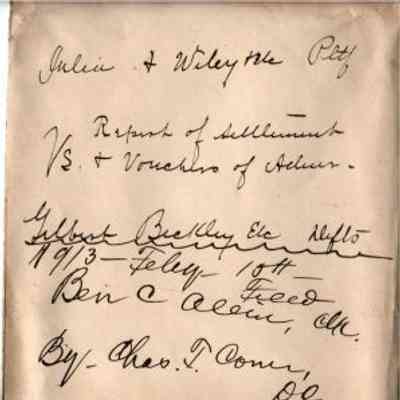 Julia & Wiley etc Pltf
Report of settlement
Vs. & Vouchers of Admr.
Gilbert Beckley Etc Defts
1913 - Feby 10th
Filed
Ben C Allin, Clk.
By Chas. T. Corn,
D.C.